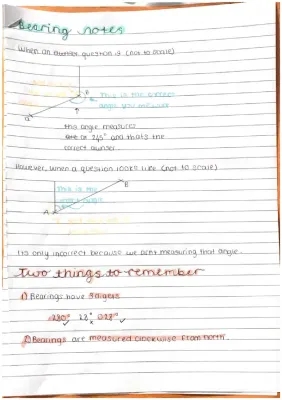 Bearing notes
When an question is (not to scale)
B
This is the correct
angle you measure
a
this angle measures
at 245° and thats the
correct answer.
However, when a question looks like (not to scale)
This is the
B
A
Its only incorrect because we arent measuring that angle.
Two things to remember
1) Bearings have 3 digets
280° 28° 028°
2) Bearings are measured clockwise from north.